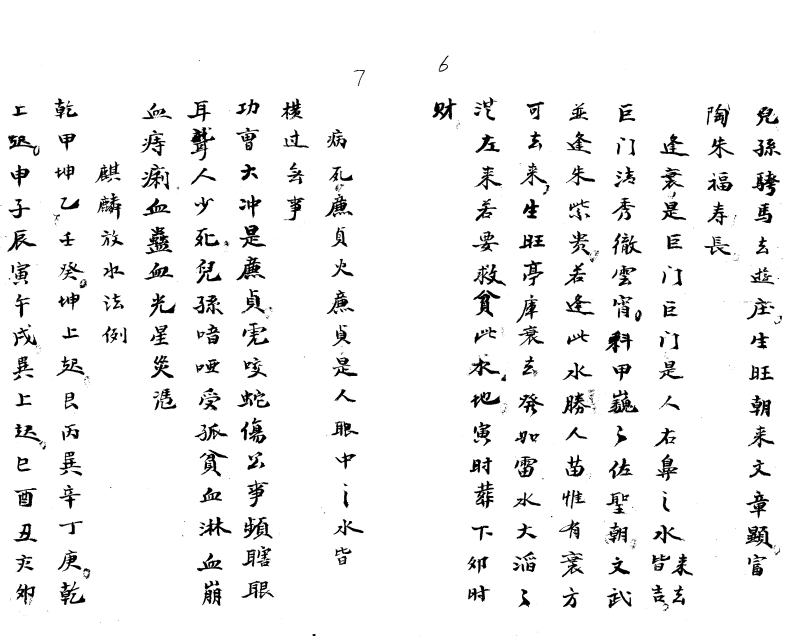 6
兒孫騎馬去遊庄生旺朝来文章顯富
陶朱福寿長
逢衰是巨门巨门是人右鼻之水皆来去吉
巨门清秀徹雲宵科甲巍々佐聖朝文武
並逢朱紫贵若逢此水勝人苗惟有衰方
可去来生旺亭庫衰去發如雷水大滔々
从左来若要救貧此水地寅时葬下卯时
财
7
病死廉貞火廉貞是人眼中之水皆
横过無事
功曹大冲是廉貞虎咬蛇傷公事頻瞎眼
耳聾人少死兒孫喑啞受孤貧血淋血崩
血痔痢血蠱血光星災
麒麟放水法例
乾甲坤乙壬癸坤上起艮丙巽辛丁庚乾
上起申子辰寅午戌巽上起巳酉丑亥卯